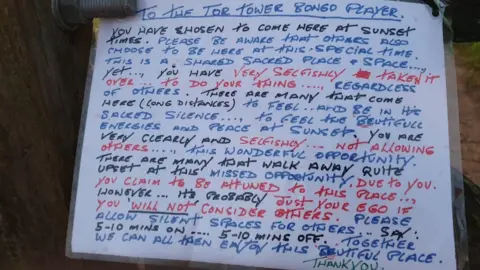 TO THE TOR TOWER BONGO PLAYER.
YOU HAVE CHOSEN TO COME HERE AT SUNSET
TIMES. PLEASE BE AWARE THAT OTHERS ALSO
CHOOSE TO BE HERE AT THIS SPECIAL TIME.
THIS IS A SHARED SACRED PLACE & SPACE...,
YET.., YOU HAVE VERY SELFISHLY TAKEN IT
OVER... TO DO YOUR THING..... REGARDLESS
OF OTHERS. THERE ARE MANY THAT COME
HERE (LONG DISTANCES) TO FEEL.. AND BE IN ITS
SACRED SILENCE..., TO FEEL THE BEUTIFULL
ENERGIES AND PEACE AT SUNSET. YOU ARE
VERY CLEARLY AND SELFISHLY... NOT ALLOWING
OTHERS...., THIS WONDERFUL OPPORTUNITY.
THERE ARE MANY THAT WALK AWAY QUITE
UPSET AT THIS MISSED OPPORTUNITY. DUE TO YOU.
YOU CLAIM TO BE ATTUNED TO THIS PLACE..,
HOWEVER... ITS PROBABLY JUST YOUR EGO IF
YOU WILL NOT CONSIDER OTHERS. PLEASE
ALLOW SILENT SPACES FOR OTHERS... SAY.
5-10 MINS ON .... 5-10 MINS OFF.. TOGETHER
WE CAN ALL THEN ENJOY THIS BEUTIFUL PLACE.
THANKYOU.